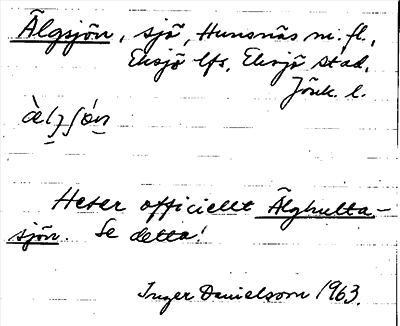 Älgsjön, sjö, Hunsnäs m. fl.,
Eksjö lfs, Eksjö stad,
Jönk. l.
Heter officiellt Älghulta-
sjön. Se detta!
Inger Danielsson 1963.